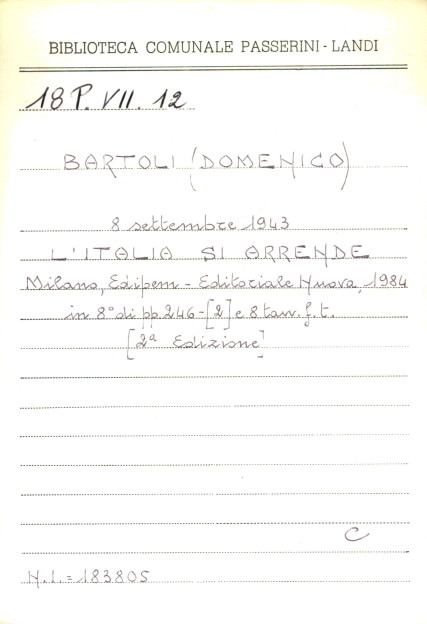 BIBLIOTECA COMUNALE PASSERINI - LANDI
18 P. VII. 12
BARTOLI (DOMENICO)
8 settembre 1943
L'ITALIA SI ARRENDE
Milano, Edipem - Editoriale Nuova, 1984
in 8° di pp. 246-[2] e 8 tav. f. t.
[2ª Edizione]
C
N. I. = 183805